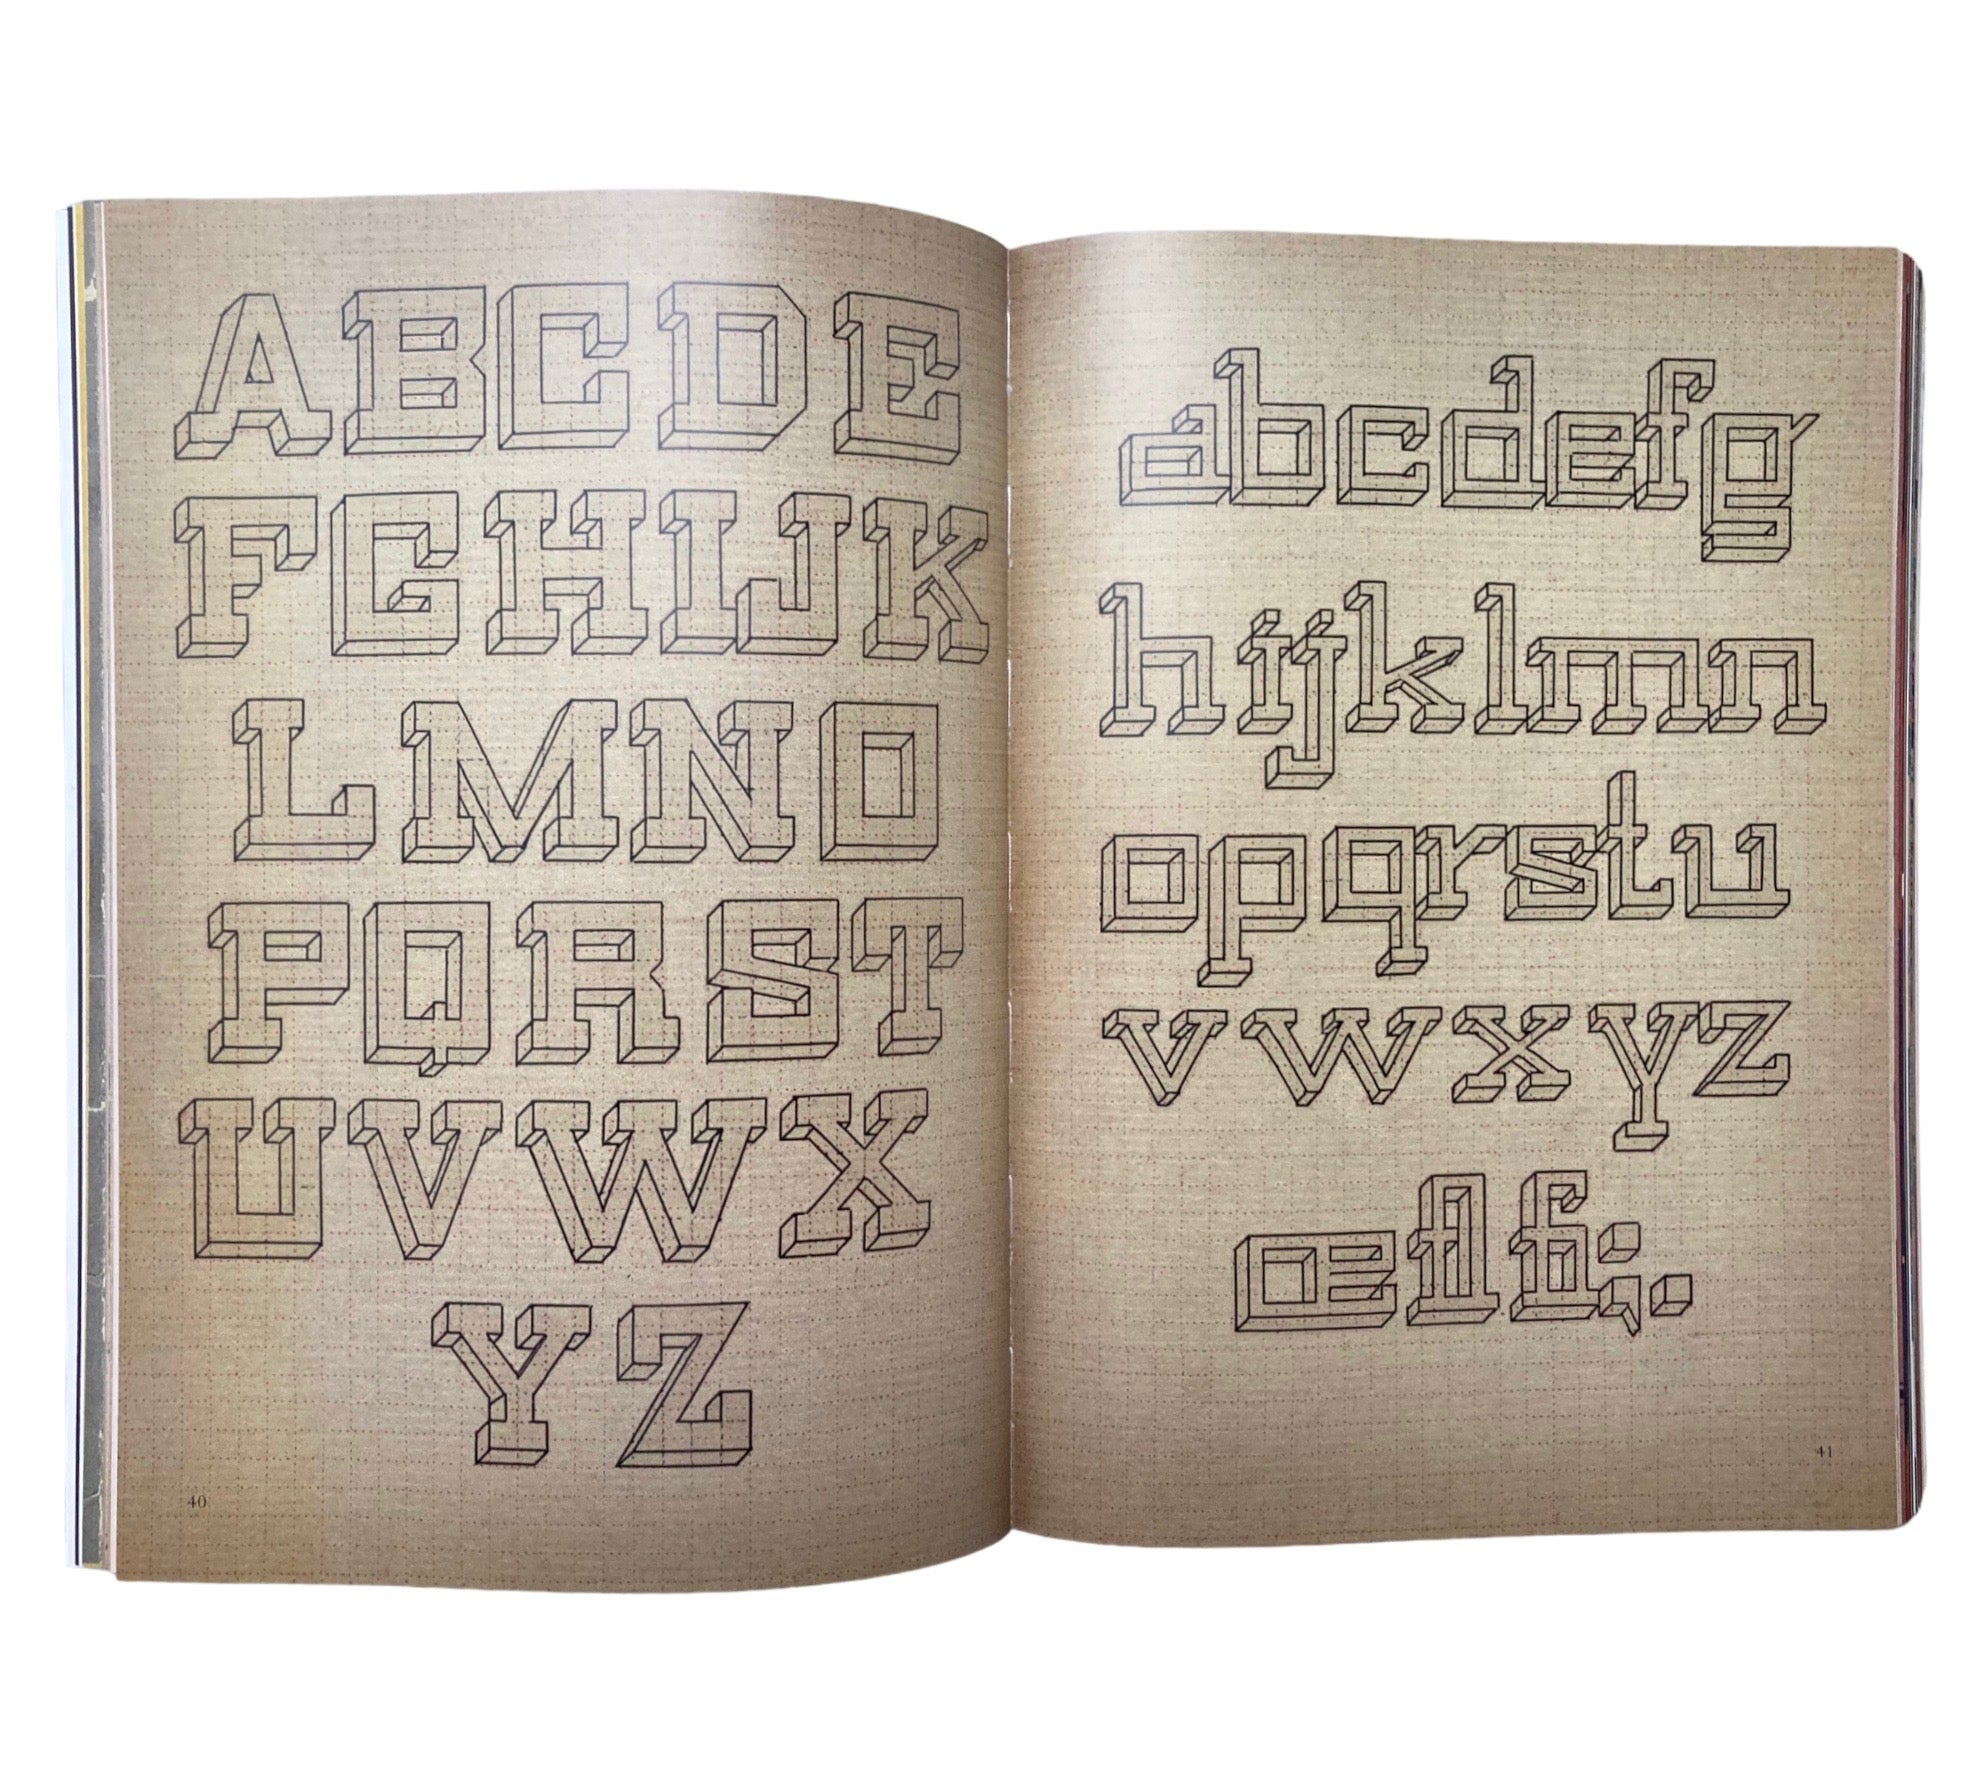 ABCDE
FGHIJK
LMNO
PQRST
UVWX
YZ
40
abcdefg
hijklmn
opqrstu
vwxyz
œflfi;.
41